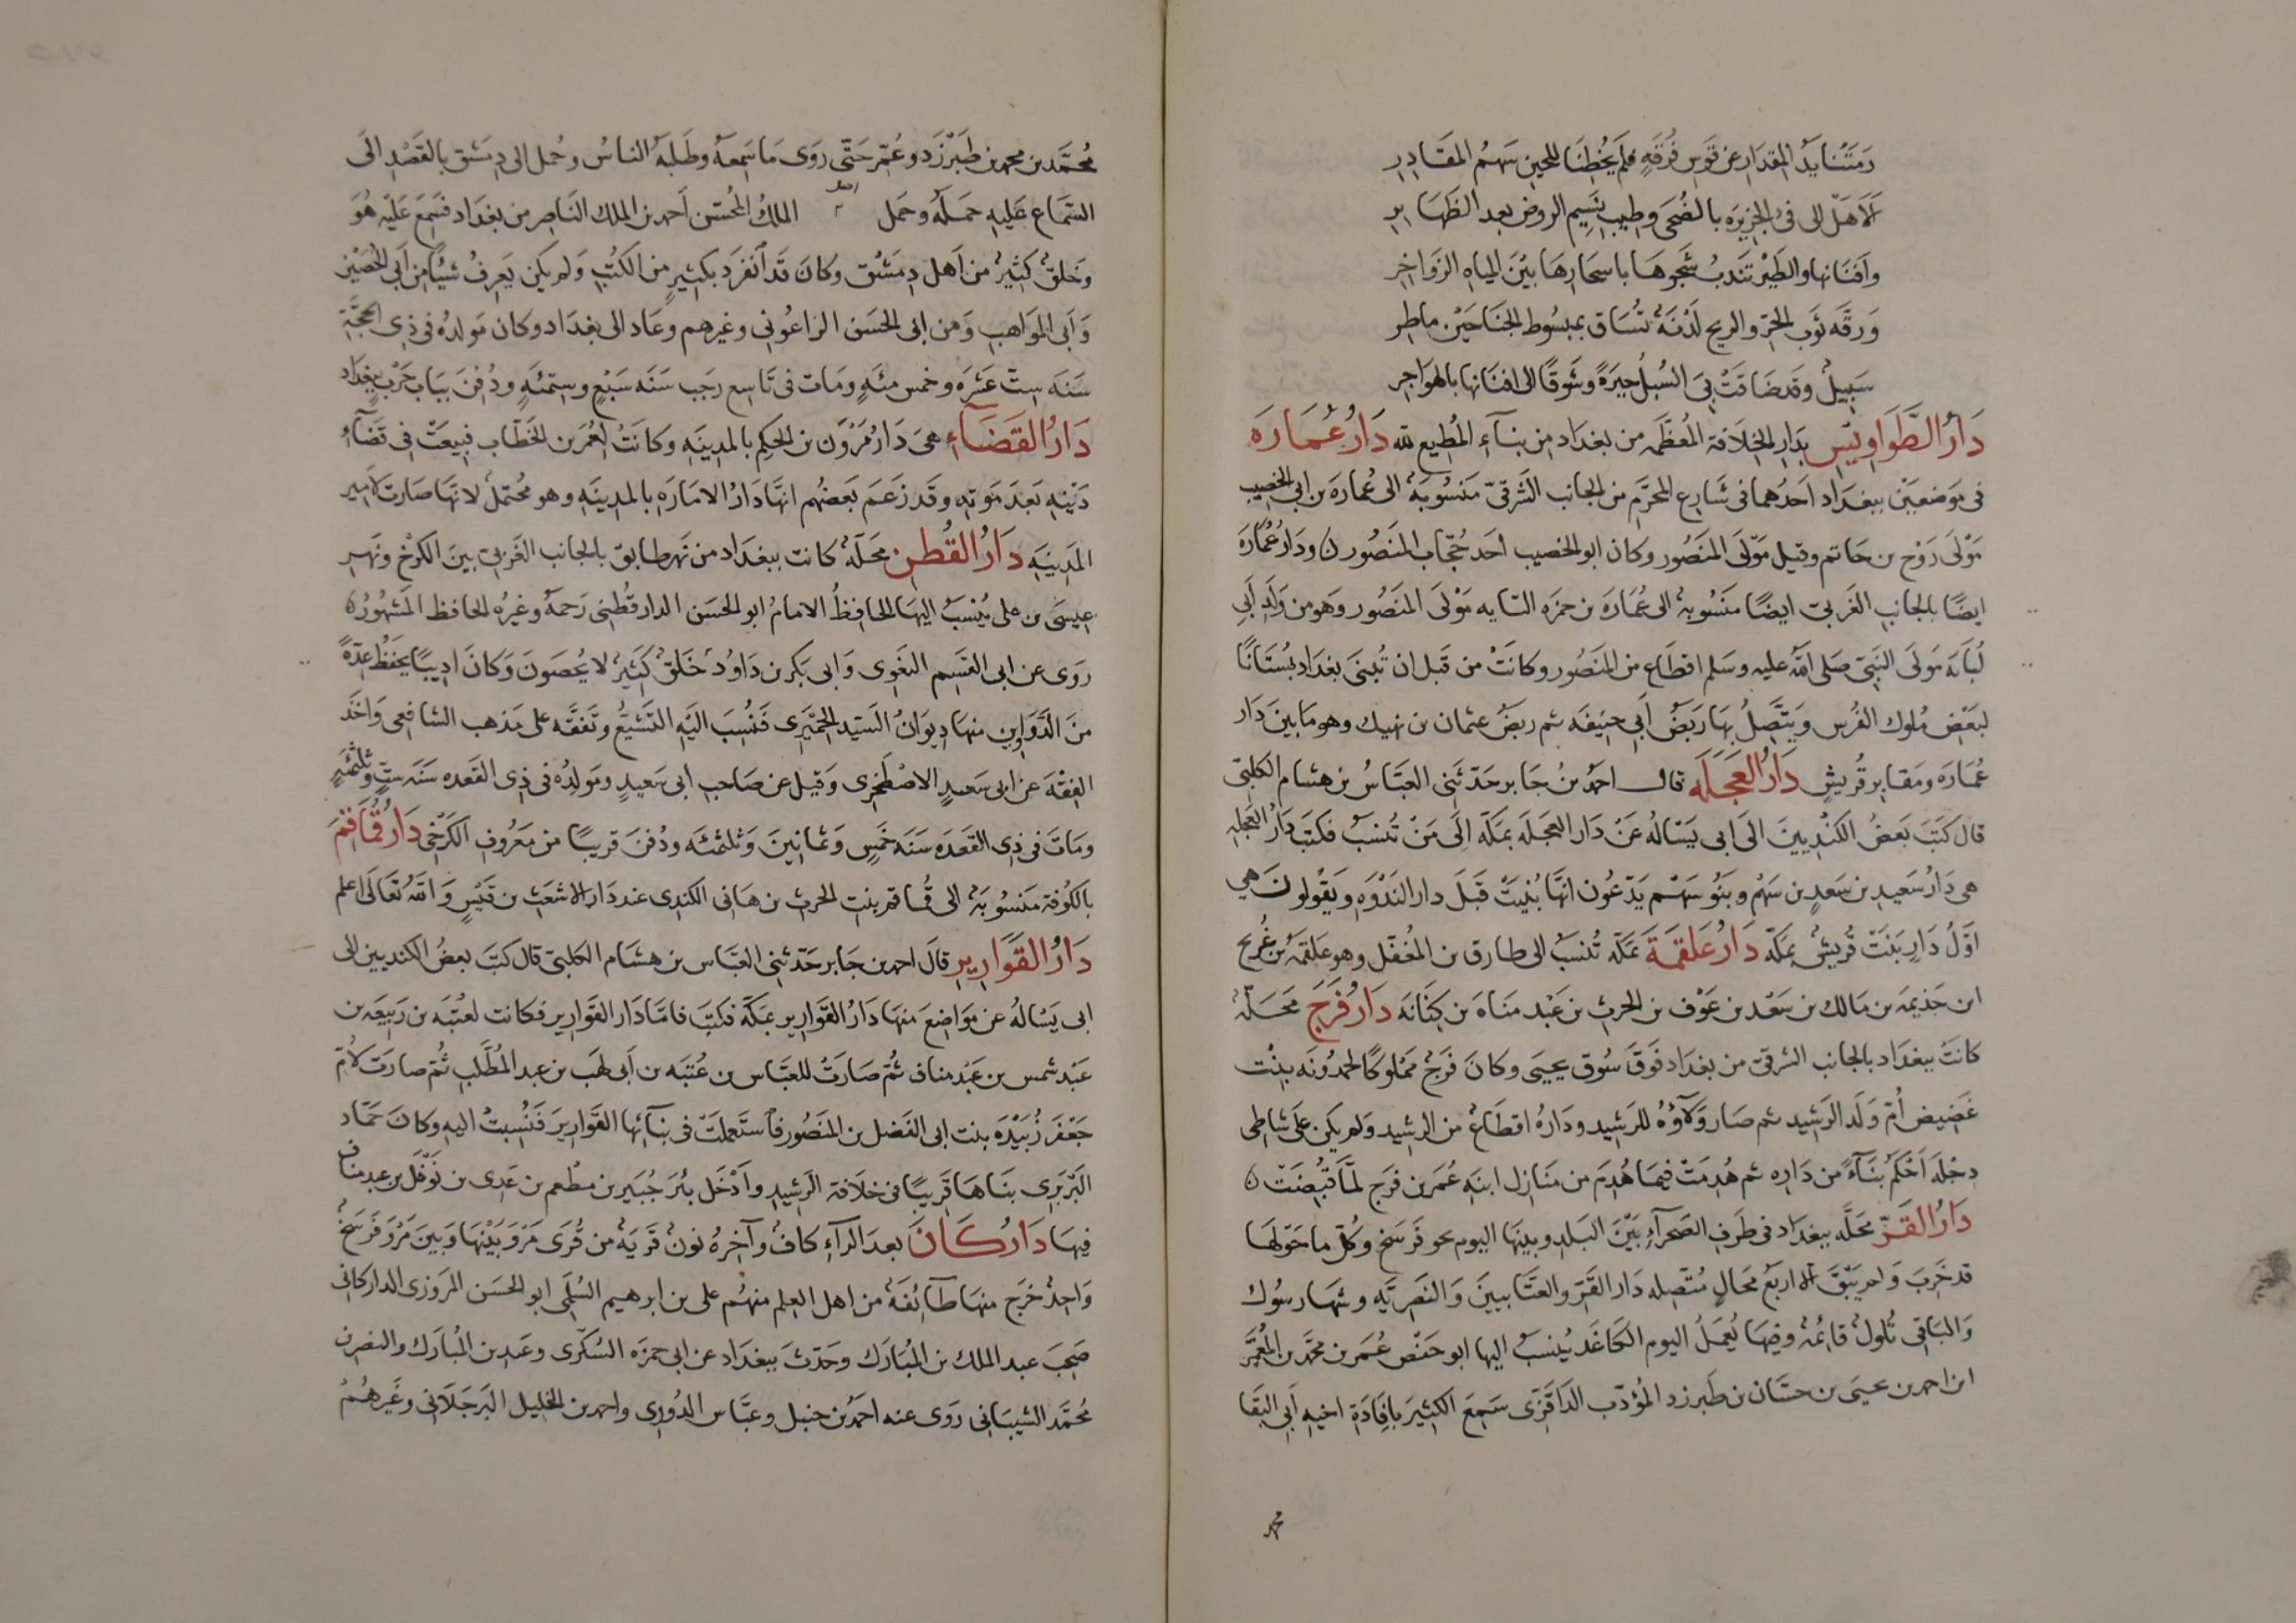 رَمَتْنا يَدُ المِقدَارِ عن قَوسِ فُرْقَةٍ فلَم يُخْطِنَا للحينِ سَهمُ المقَادِرِ
أَلَا هَل الى فَىْءِ الجَزِيرَه بالضُحَى وطِيبِ نَسِيمِ الروضِ بعد الظَهَايرِ
وأَفنَانها والطَيْر تَندبُ شَجوهَا باسحَارِهَا بَيْنَ المياهِ الزَوَاخِرِ
وَرِقَّه ثوَبِ الحَرّ والريح لَدْنَةٌ تُسَاق بمبسُوطِ الجَنَاحَيْن ماطِرِ
سَبِيلٌ وقَد ضَاقَتْ بِىَ السُبلُ حيرَةً وشَوقًا الى افنَانها بالهَوَاجرِ
دَارُ الطَّوَاوِيسِ بدَارِ الخِلَافة المُعَظَّمَه من بغدَاد مِن بنَآءِ المُطِيع لله دَارُ عُمَارَه
فى مَوضعَيْنِ ببغدَاد اَحدُهما فى شَارِع المخرَّمِ من الجانب الشَرقىّ مَنسُوبَةٌ الى عُمارَه بن ابى الخصِيب
مَوْلَى رَوْح بن حَاتم وقيل مَوْلَى المنَصُور وكان ابو الخصيب احَد حُجَّاب المَنصُور ن ودَارُ عُمَارَه
ايضًا بالجانبِ الغَربىّ ايضًا منَسُوبهٌ الى عُمَارَه بن حمزَه التايه مَوْلَى المنَصُور وَهو من وَلَد اَبى
لُبَابَه مَولَى النبَىّ صَلى اللهُ عليه وسَلم اقطَاع من المنَصُور وكانَتْ من قَبل ان تُبنَى بغدَاد بُستَانًا
لبعَضِ مُلوك الفُرس وَيتَّصِلُ بهَا رَبَضُ اَبِى حنِيفَه ثم رَبَضُ عثمان بن نهيك وهو مَا بَيْن دَار
عُمَارَه ومَقابِر قُرَيشٍ دَارُ العَجَلَه قال احمدُ بنُ جَابر حَدّثَنى العبَّاسُ بن هشَام الكلبىّ
قال كَتَبَ بَعضُ الكِنْدِيينَ الىَ ابى يَسْالُه عَنْ دَار العجَلَه بمَكّه اِلَى مَنْ تُنسَبُ فكتَبَ دَارُ العَجلَه
هى دَارُ سَعِيدِ بن سَعدِ بن سَهْم وبَنُو سَهْم يَدّعُون انهَّا بُنيَتْ قَبلَ دار النَدْوَه وَيقُولونَ هى
اوّلُ دَارٍ بَنَتْ قُريشٌ بمكّه دَارُ عَلقَمَة بمكّه تُنسَبُ الى طارق بن المُغفّل وهو عَلقمَهُ بن عُرَيج
ابن جَذيمَه بن مَالك بن سَعْد بن عَوْف بن الحرثِ بن عَبْد منَاه بن كِنَانَه دَارُ فَرَج محَلّهٌ
كانتْ ببغدَاد بالجانب الشرقىّ من بغدَاد فَوقَ سُوق يحيَى وكانَ فَرَجٌ مَمْلوكًا لحمدُونَه بِنْت
غَضيض اُمّ وَلَد الرَشِيد ثم صَار وَلاَؤهُ للرَشِيد ودَارُه اقطَاعٌ من الرشِيد ولم يكن عَلَى شاطى
دجْلَه اَحْكَم بنَآءً من دَاره ثم هُدمَتْ فيمَا هُدِمَ من مَنَازل ابنهِ عُمَر بن فرَج لمَّا قُبِضَتْ ن
دَارُ القَزّ محَلَّه ببغدَاد فى طَرفِ الصَحرآء بَيْنَ البَلدِ وبينهَا اليوم نحو فَرسَخ وكُلّ ما حَوْلهَا
قد خَربَ وَلم يَبْقَ الا اربَعُ محَالٍ مُتّصِله دَار القَزّ والعتَّابيينَ وَالنَصرِيَّه وشهَارسُوك
وَالبَاقى تُلولٌ قائمةٌ وفيهَا يُعمَلُ اليوم الكَاغَد يُنسَبُ اليها ابو حَفْص عُمَر بن محمَّد بن المُعَمَّر
ابن احمد بن يحيىَ بن حسَّان بن طَبرزد المُؤدّب الدَارقَزّى سَمِعَ الكثِيرَ بافِادَة اخيهِ اَبى البَقَا
محمد
مُحمَّد بن محمد بن طَبَرْزَد وعُمّر حَتّى رَوَى مَا سَمِعَهُ وطَلَبَهُ الناسُ وحُمل الى دِمَشق بالقَصْدِ الَى
السَّمَاعِ عَليهِ حَملَهُ وحمَل اصل الملكُ المُحْسن اَحمد بن الملك النَاصِر من بغدَاد فسَمِعَ عَلَيْه هُوَ
وَخَلقٌ كثِيرٌ من اَهل دِمَشْق وكانَ قَد اَنفرَد بكثِيرٍ من الكُتبِ وَلم يكن يَعرِفُ شيئًا من اَبى الحُصَيْن
وَاَبى المَوَاهبِ وَمن ابى الحسَن الزاغُونى وغيرهم وعَاد الى بغدَاد وكان مَولدُه فى ذِى الحَجَّةِ
سَنَه سِتّ عَشْرَه وخمس مئَهٍ ومَات فى تَاسِع رجَب سَنَه سَبْعٍ وستمئَهٍ ودُفنَ ببَاب حَرْبٍ ببغدَاد
دَارُ القَضَآءِ هىَ دَارُ مَرْوَن بن الحكِم بالمدِينَه وكانَتْ لعُمَر بن الخَطّاب فبِيعَتْ فى قَضَآءِ
دَيْنِه بَعدَ مَوته وقَد زعَمَ بَعَضُهم انهَّا دَارُ الامارَه بالمدِينَه وهو مُحتملٌ لانهَّا صَارت لاَمِير
المَدِينَه دَارُ القُطن محَلّهٌ كانت ببغدَاد من نهَر طَابَق بالجَانب الغَربىّ بينَ الكَرْخ ونَهر
عيسَى بن على يُنْسَبُ اليهَا الحَافِظُ الامامُ ابو الحسَن الدارقُطنى رَحمَهُ وغيرُه الحافظ المَشهُورُ ن
رَوَى عن ابى القسِم البَغَوِى وَابى بَكر بن دَاوُد خَلقٌ كَثِيرٌ لا يُحصَونَ وَكانَ اديبًا يحفَظُ عدّةً
منَ الدَّوَاوِين منها ديوَانُ السَيّد الحِمْيَرى فَنُسبَ اليَهِ التَشَيّعُ وتَفقَّه على مَذهب الشافعى وَاخذَ
الفِقْهَ عن ابى سَعيدٍ الاصْطَخرِى وَقيل عن صَاحبِ ابى سَعيدٍ ومَولدُه فى ذِى القعَده سَنَه سِتٍّ وثَلثمئَهٍ
ومَاتَ فى ذِى القعدَه سَنَه خَمسٍ وَثمانِينَ وَثلثمئَه ودُفنَ قريبًا من مَعرُوف الكَرْخى دَارُ قُمَاقِمَ
بالكُوفة مَنسُوبَهٌ الى قُماقم بنتِ الحرثِ بن هَانى الكندِى عند دَار الاشعَثِ بن قَيْسٍ وَاللهُ تَعَالَى اعلم
دَارُ القَوَارِير قالَ احمد بن جَابر حَدّثنى العبَّاس بن هشَام الكلبىّ قال كتَبَ بعضُ الكنديين الى
ابى يَسْالُه عن مَوَاضِعَ منها دَارُ القَوَارير بمَكّه فكتَبَ فامَّا دَار القَوارِير فكانت لعُتبَه بن رَبيعَه بن
عَبد شمس بن عَبْد مناف ثُمّ صَارتْ للعَبَّاس بن عُتبَه بن اَبى لهَب بن عبد المُطَّلب ثُمّ صارَت لأُمّ
جَعْفَر زُبَيْدَه بنت ابى الفَضل بن المنَصُور فاستَعملَتْ فى بنآئها القَوارِيرَ فَنُسبتْ اليهِ وكانَ حمّاد
البَرْبَرِى بنَاهَا قَريبًا فى خلَافة الرَشِيدِ واَدْخَل بئَر جُبَيرِ بن مطعم بن عَدِى بن نَوْفَل بن عبد منَاف
فيهَا دَارُكَانَ بعدَ الرَآءِ كافٌ وآخِرُهُ نونٌ قَريَةٌ من قُرَى مَرْوَ بَيْنهَا وبَينَ مَرْوَ فَرْسَخٌ
وَاحِدٌ خَرَج منهَا طآئِفَةٌ من اهل العِلم منهُم على بن ابرهيم السُلَمى ابو الحسَن المَروزِى الداركانى
صَحِبَ عبد الملك بن المُبَارَك وحَدّثَ ببغدَاد عن ابى حمزَه السُكّرى وعبد بن المُبارَك والنضر بن
مُحمَّد الشيبَانى رَوَى عنه احمَدُ بن حنبل وعبَّاس الدُورِى واحمد بن الخليل البَرجَلَانى وغَيرهُمْ